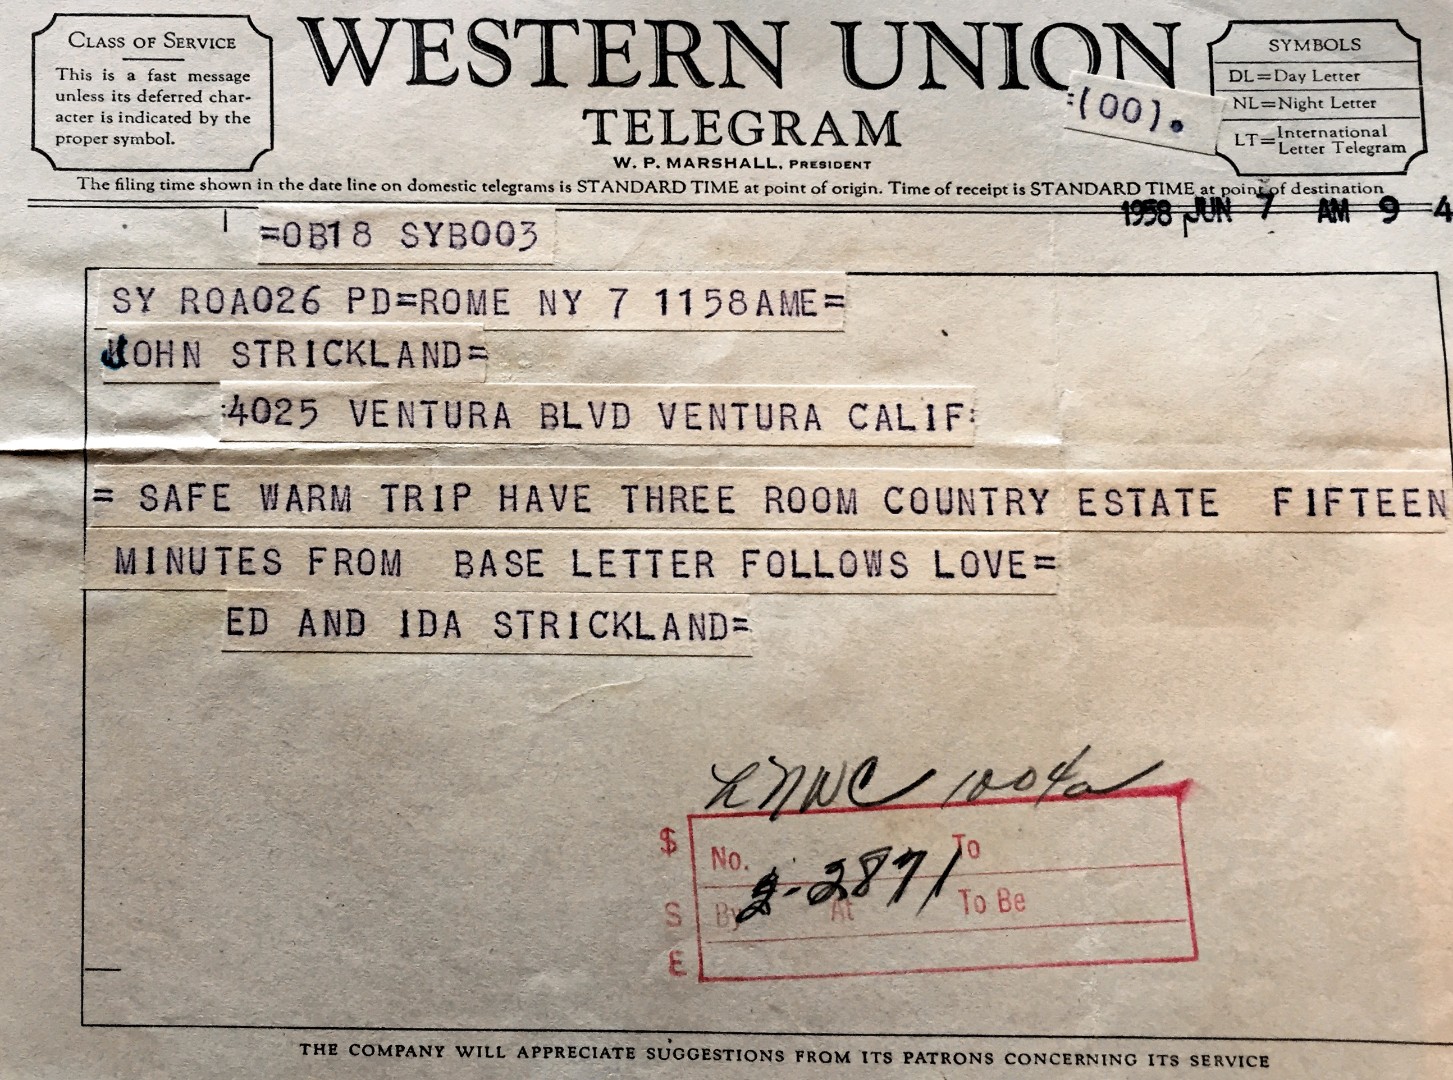 CLASS OF SERVICE
This is a fast message
unless its deferred char-
acter is indicated by the
proper symbol.
WESTERN UNION
TELEGRAM
W. P. MARSHALL, PRESIDENT
=(00).
SYMBOLS
DL=Day Letter
NL=Night Letter
LT=International Letter Telegram
The filing time shown in the date line on domestic telegrams is STANDARD TIME at point of origin. Time of receipt is STANDARD TIME at point of destination
1958 JUN 7 AM 9 4
=OB18 SYB003
SY ROA026 PD=ROME NY 7 1158AME=
JOHN STRICKLAND=
:4025 VENTURA BLVD VENTURA CALIF:
= SAFE WARM TRIP HAVE THREE ROOM COUNTRY ESTATE FIFTEEN
MINUTES FROM BASE LETTER FOLLOWS LOVE=
ED AND IDA STRICKLAND=
1004a
$ No. To
2-2871
S By At To Be
E
THE COMPANY WILL APPRECIATE SUGGESTIONS FROM ITS PATRONS CONCERNING ITS SERVICE